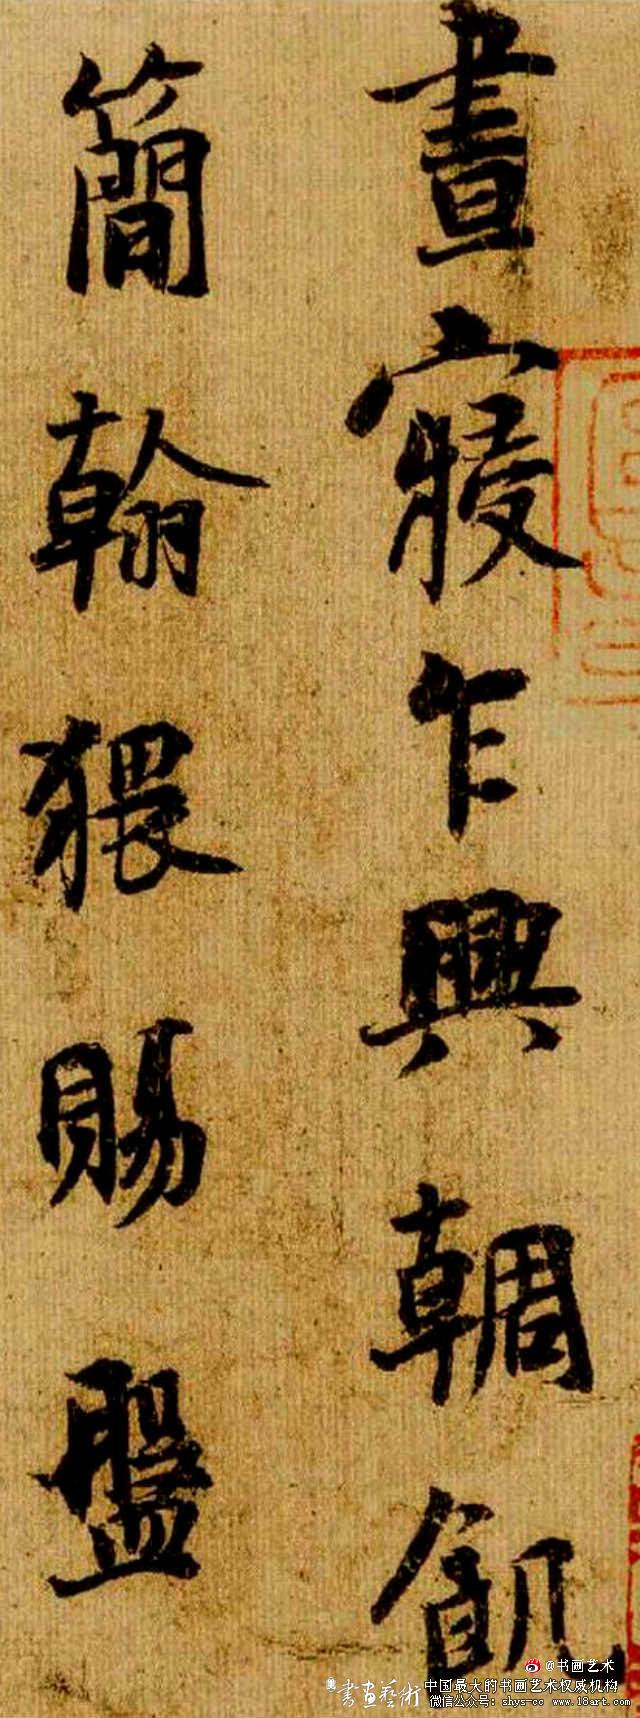 晝寢乍興輖飢
簡翰猥賜盤
@书画艺术
書畫藝術 中国最大的书画艺术权威机构
微信公众号：shys-cc www.18art.com